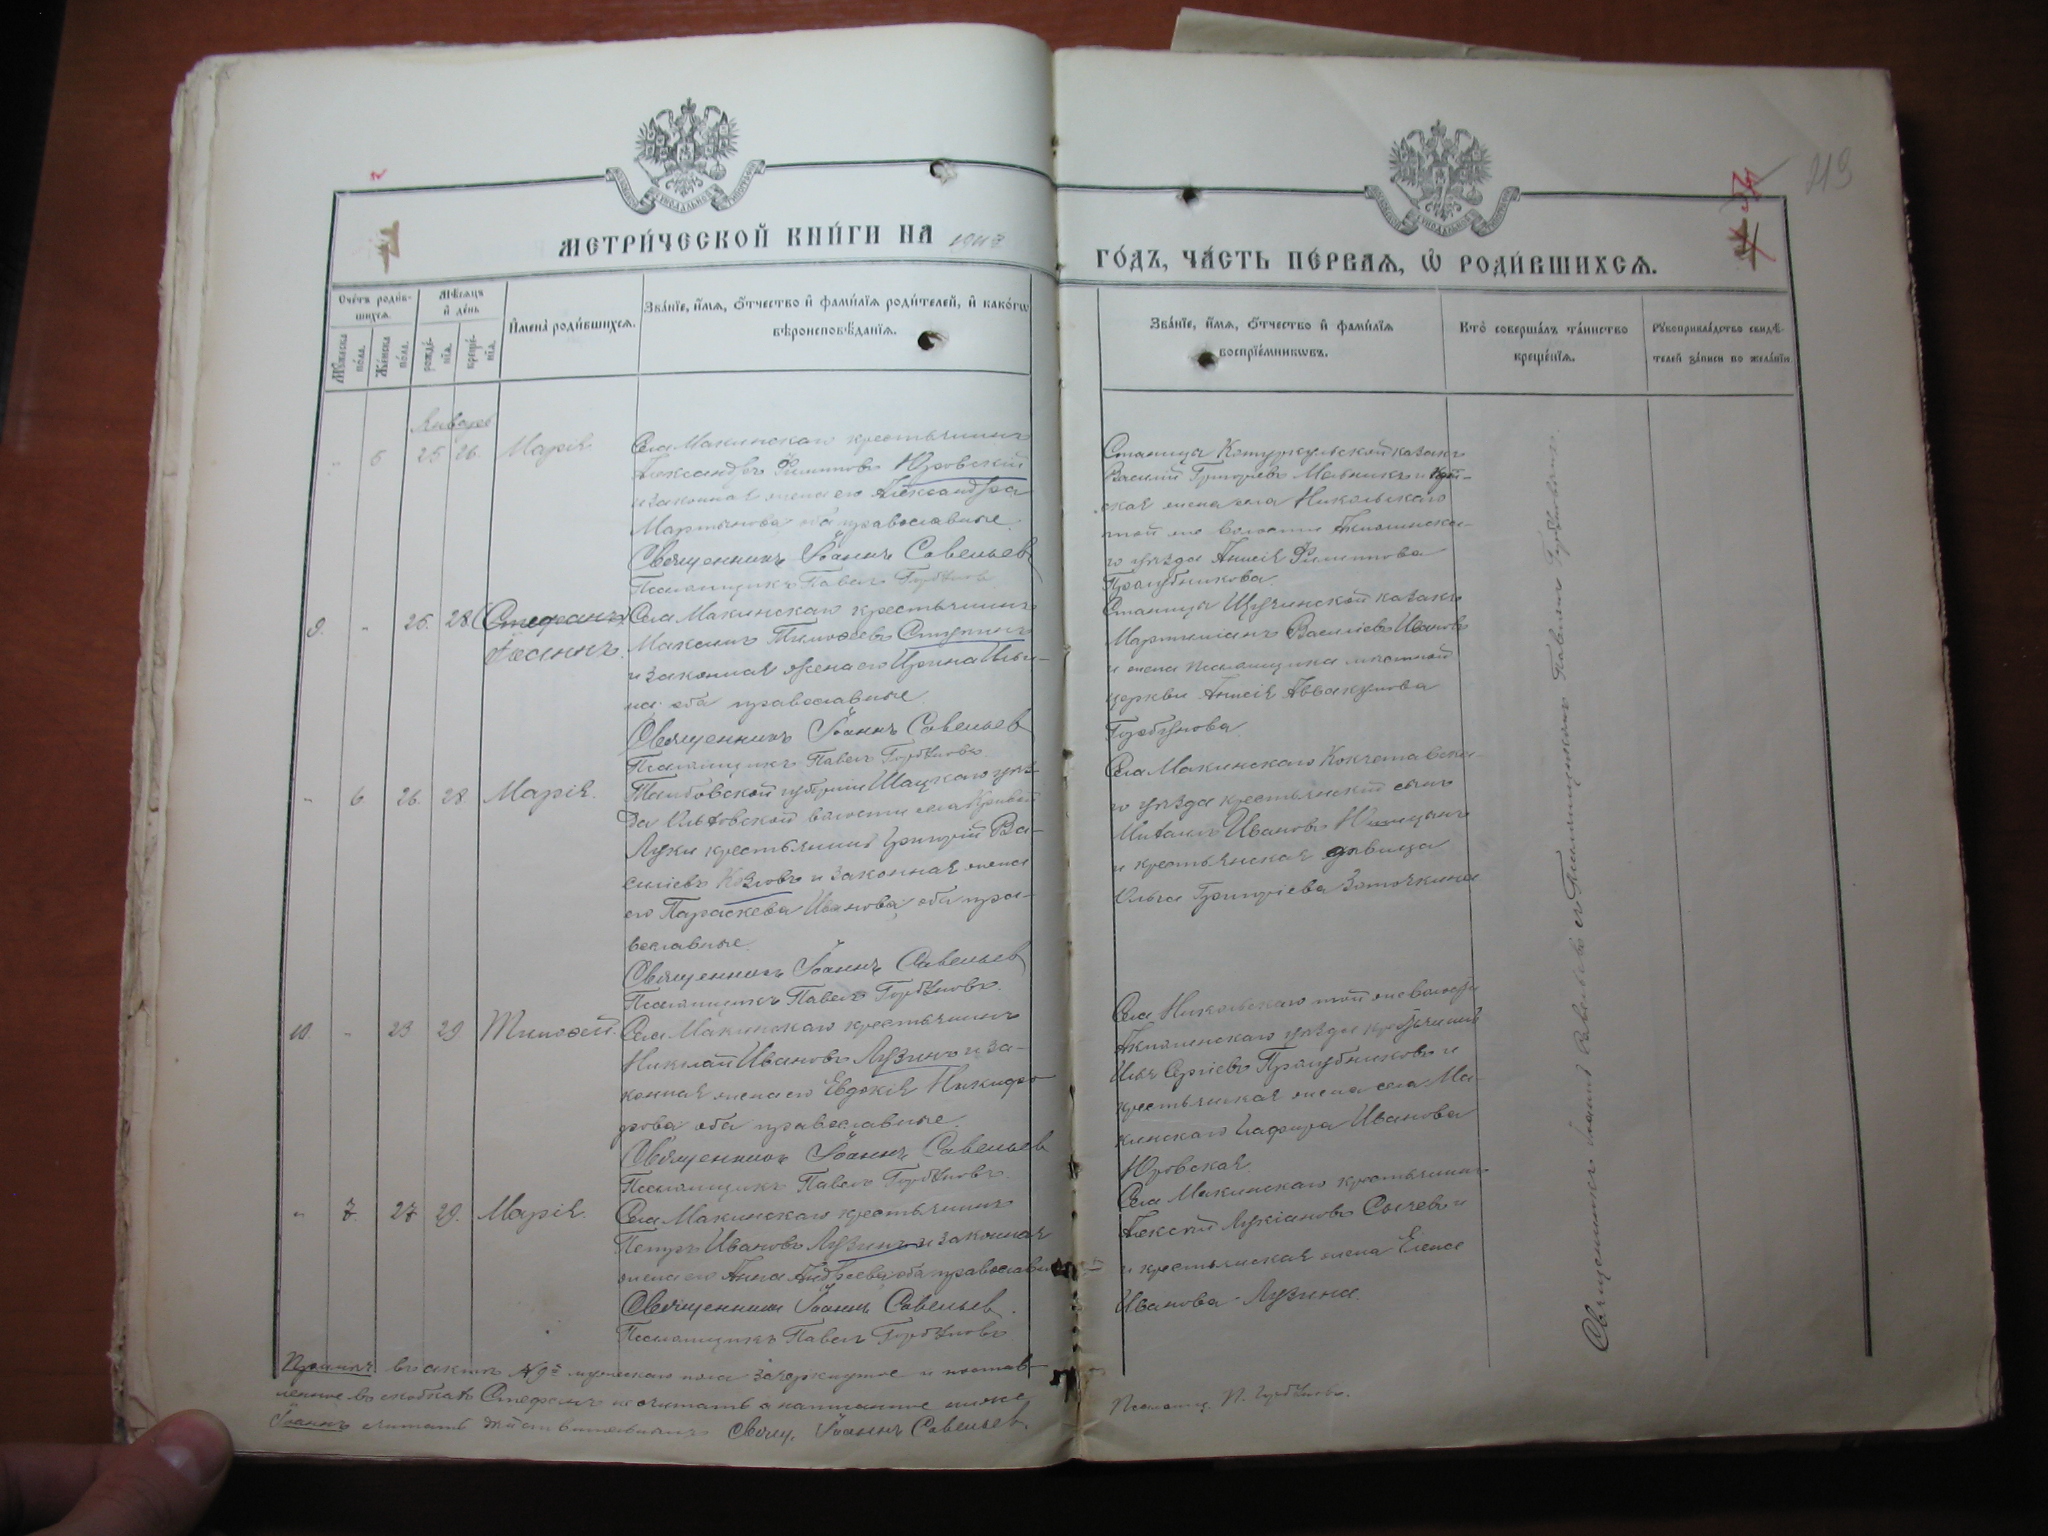 213
МЕТРИ́ЧЕСКОЙ КНИ́ГИ НА
ГО́ДЪ, ЧА́СТЬ ПЕ́РВАЯ, Ѡ РОДИ́ВШИХСЯ.
Сче́тъ роди́в-
шихся.
Мѣ́сяцъ
и де́нь
Му́жеска
по́ла.
Же́нска
по́ла.
рожде́-
нія.
креще́-
нія.
Имена̀ роди́вшихся.
Зва́ніе, и́мя, о́тчество и фами́лія роди́телей, и како́гѡ
вѣроисповѣ́данія.
Зва́ніе, и́мя, о́тчество и фами́лія
воспріе́мниковъ.
Кто̀ соверша́лъ та́инство
креще́нія.
Рукоприкла́дство свидѣ́-
телей за́писи по жела́нію.
Января
" 5 25 26. Марія
Села Макинскаго крестьянинъ
Александръ Филиповъ Юровскій
и законная жена его Александра
Мартынова оба православные.
Священникъ Іоаннъ Савельев
Псаломщикъ Павелъ Горбуновъ
Станицы Котуркульской казакъ
Василій Григорьевъ Мельникъ и
ская жена села Никольскаго
той же волости Акмолинска-
го уѣзда Анисія Филиппова
Прапубникова.
9. " 25. 28. (Стефанъ)
Іоаннъ.
Села Макинскаго крестьянинъ
Максимъ Тимоѳеевъ Ступинъ
и законная жена его Ирина Ильи-
на оба православные.
Священникъ Іоаннъ Савельев
Псаломщикъ Павелъ Горбуновъ
Станицы Щучинской казакъ
Мартиміанъ Василіевъ Ивановъ
и жена псаломщика мѣстной
церкви Анисія Аввакумова
Горбунова.
" 6. 26. 28. Марія.
Тамбовской губерніи Шацкаго уѣз-
да Ольховской волости села Кривой
Луки крестьянинъ Григорій Ва-
силіевъ Козловъ и законная жена
его Параскева Иванова, оба пра-
вославные.
Священникъ Іоаннъ Савельев
Псаломщикъ Павелъ Горбуновъ.
Села Макинскаго Кокчетавска-
го уѣзда крестьянскій сынъ
Михаилъ Ивановъ
и крестьянская дѣвица
Ольга Григоріева Заточкина
10. " 23 29 Тимоѳей.
Села Макинскаго крестьянинъ
Николай Ивановъ Лузинъ и за-
конная жена его Евдокія Никифо-
рова оба православные.
Священникъ Іоаннъ Савельев
Псаломщикъ Павелъ Горбуновъ.
Села Никольскаго той же волости
Акмолинскаго уѣзда крестьянинъ
Илья Сергіевъ Прапубниковъ и
крестьянская жена села Ма-
кинскаго Глафира Иванова
Юровская.
" 7. 27 29. Марія.
Села Макинскаго крестьянинъ
Петръ Ивановъ Лузинъ и законная
жена его Анна Андреева, оба православн
Священникъ Іоаннъ Савельев.
Псаломщикъ Павелъ Горбуновъ
Села Макинскаго крестьянинъ
Алексій Лукіановъ Сычевъ и
и крестьянская жена Елена
Иванова Лузина.
Священникъ Іоаннъ Савельевъ съ Псаломщикомъ Павломъ Горбуновымъ.
Примѣч. въ актѣ №9й мужскаго пола зачеркнутое и постав-
ленное въ скобкахъ Стефанъ не считать а написанное ниже
Іоаннъ считать дѣйствительнымъ Свящ. Іоаннъ Савельев.
Псаломщ. П. Горбуновъ.